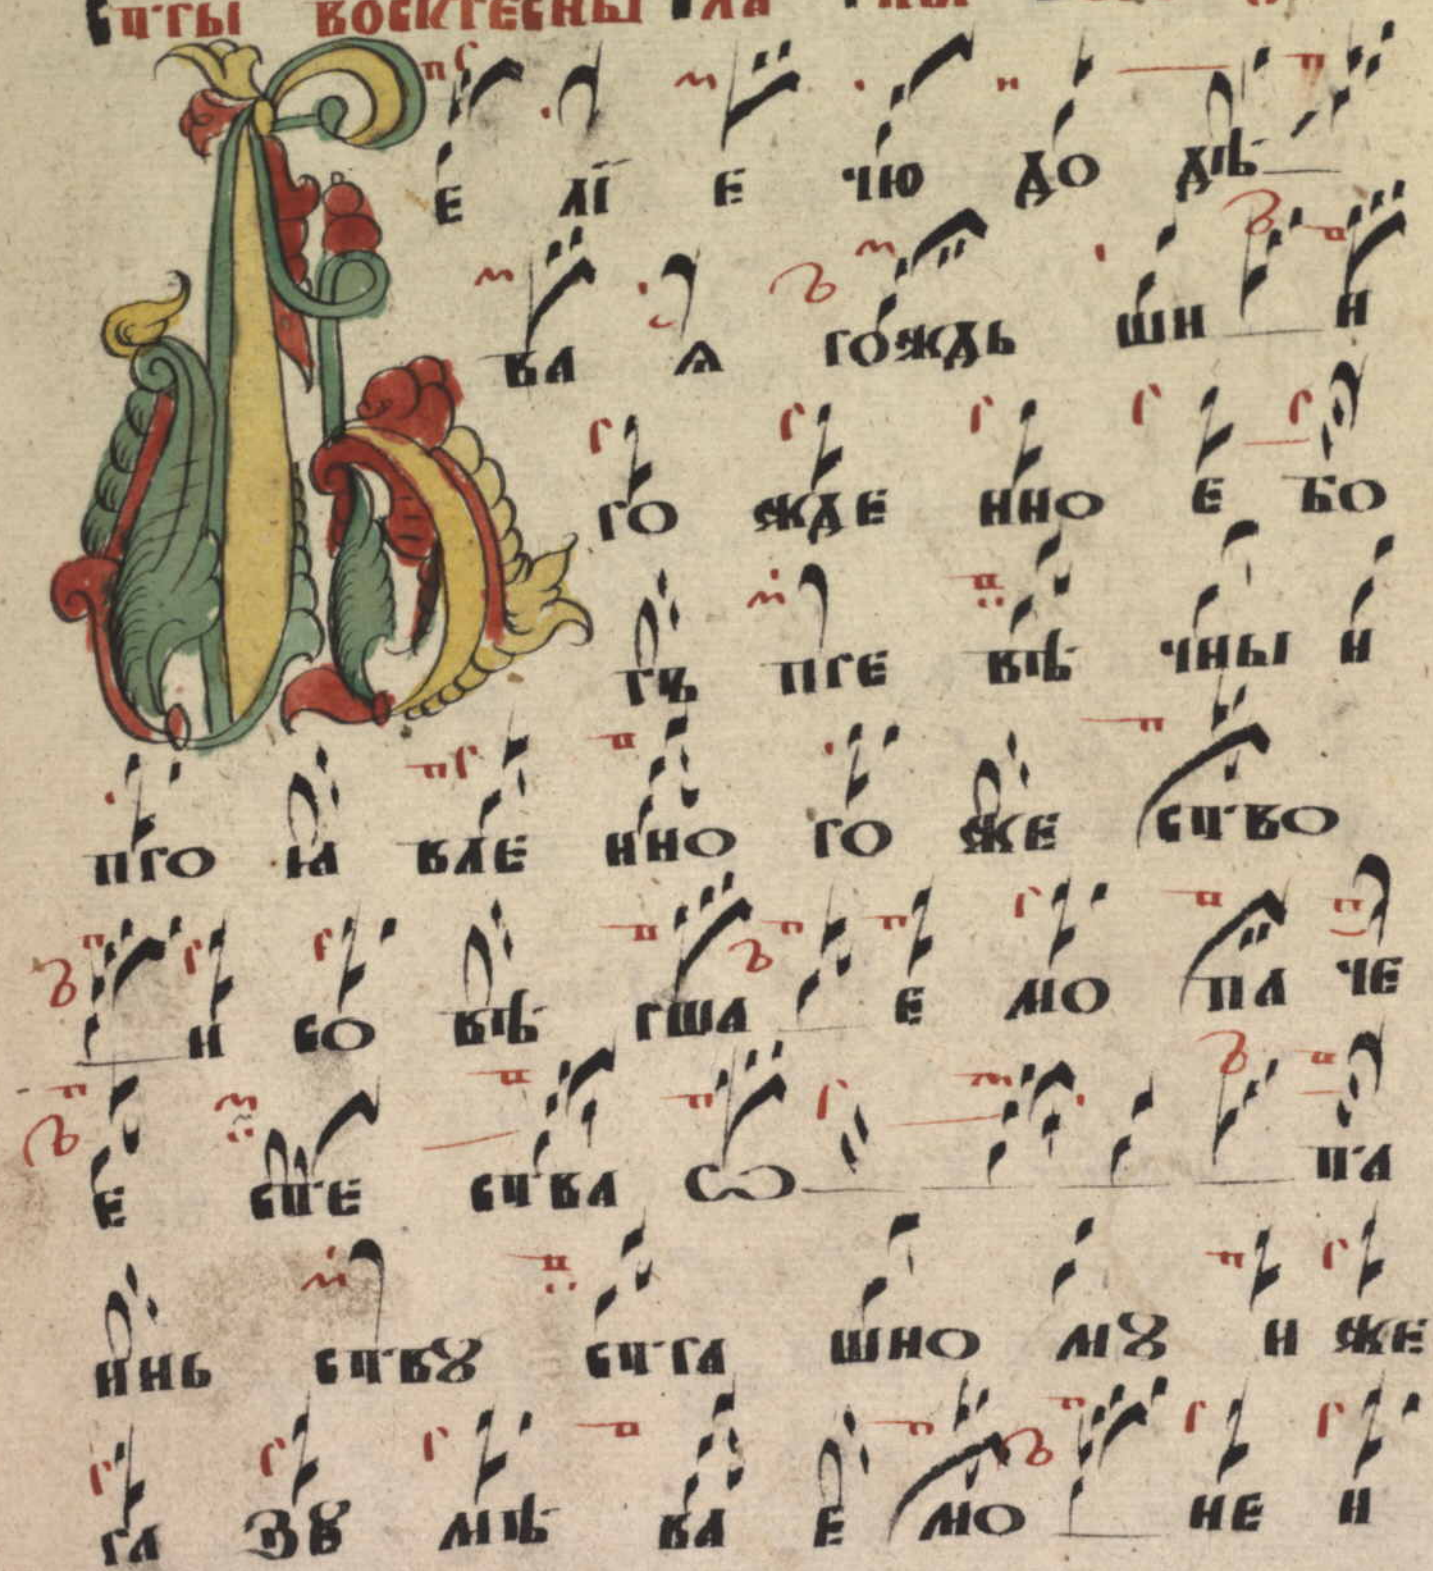 стры воскресны гла
Ве лі е чю до дѣ
ва ѧ рождь ши и
ро жде нно е бо
гъ пре вѣ чны и
про ꙗ вле нно ро же ство
и со вѣ рша е мо па че
е сте ства ѡ та
инь ствꙋ стра шно мꙋ и же
ра зꙋ мѣ ва е мо не и